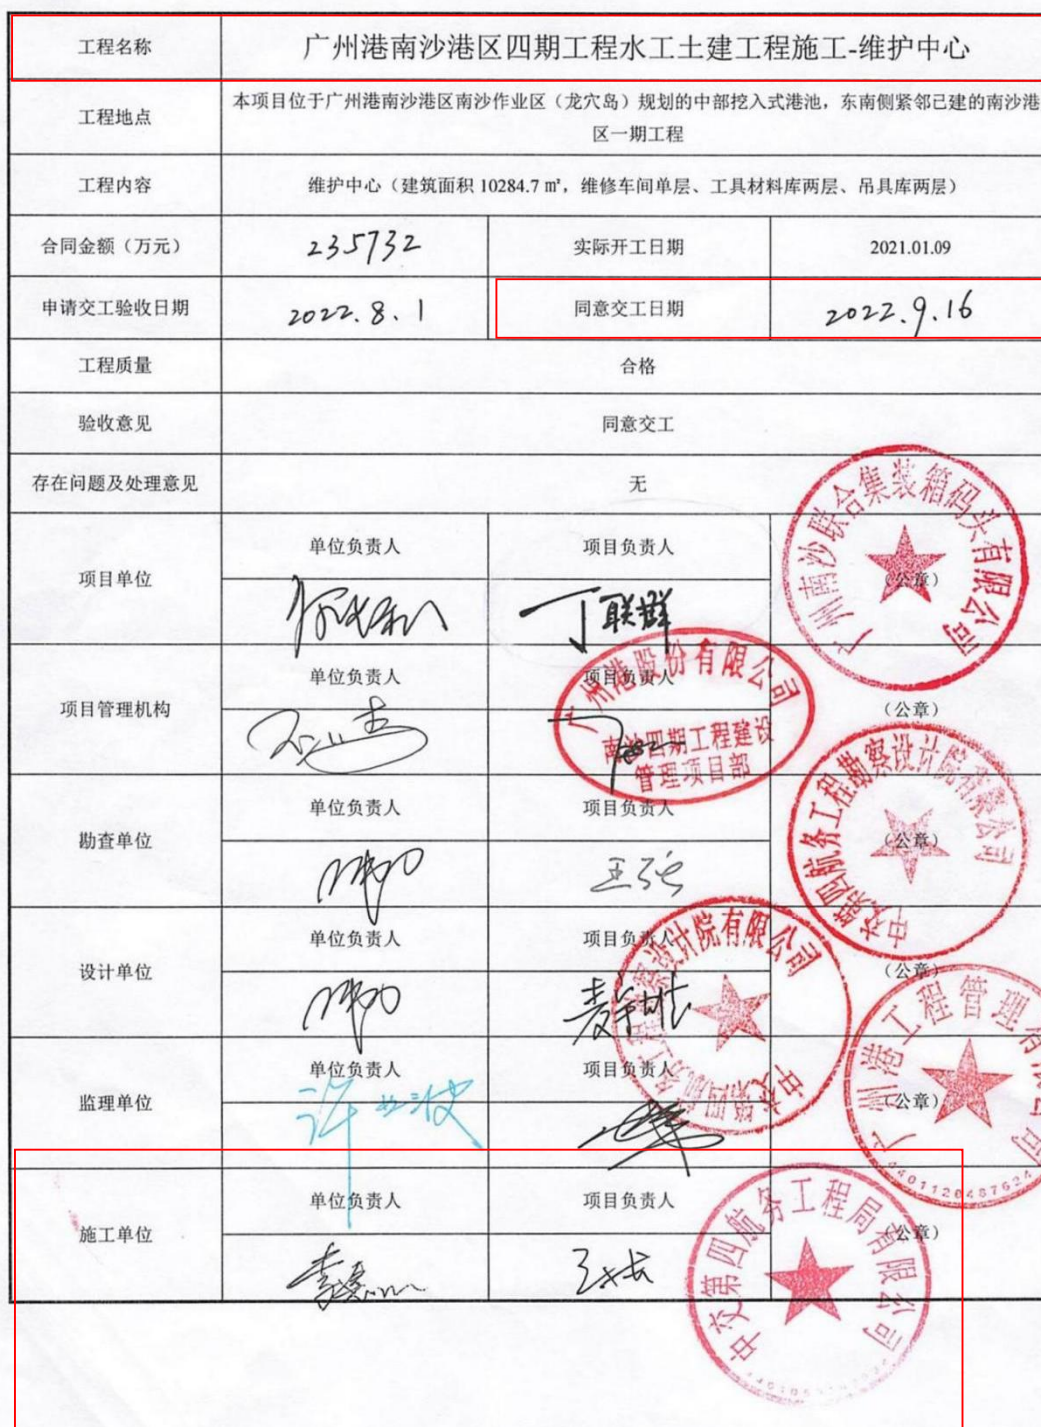 工程名称
广州港南沙港区四期工程水工土建工程施工-维护中心
工程地点
本项目位于广州港南沙港区南沙作业区（龙穴岛）规划的中部挖入式港池，东南侧紧邻已建的南沙港
区一期工程
工程内容
维护中心（建筑面积 10284.7 ㎡，维修车间单层、工具材料库两层、吊具库两层）
合同金额（万元）
235732
实际开工日期
2021.01.09
申请交工验收日期
2022.8.1
同意交工日期
2022.9.16
工程质量
合格
验收意见
同意交工
存在问题及处理意见
无
项目单位
单位负责人
项目负责人
丁联群
（公章）
广州南沙联合集装箱码头有限公司
项目管理机构
单位负责人
项目负责人
（公章）
广州港股份有限公司
南沙四期工程建设
管理项目部
勘查单位
单位负责人
项目负责人
王强
（公章）
中交第四航务工程勘察设计院有限公司
设计单位
单位负责人
项目负责人
（公章）
中交第四航务工程勘察设计院有限公司
监理单位
单位负责人
项目负责人
（公章）
广州港工程管理有限公司
施工单位
单位负责人
项目负责人
（公章）
中交第四航务工程局有限公司